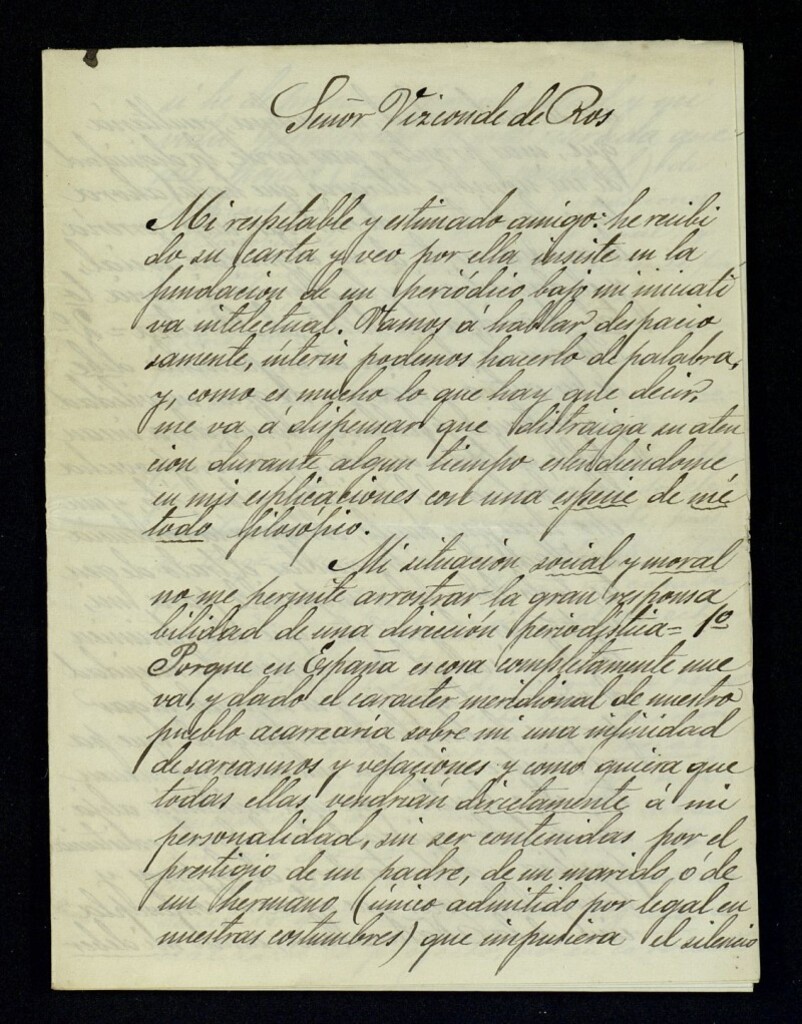 Señor Vizconde de Ros
Mi respetable y estimado amigo: he recibi
do su carta y veo por ella insiste en la
fundacion de un periódico bajo mi iniciati
va intelectual. Vamos á hablar despacio
samente, ínterin podemos hacerlo de palabra,
y, como es mucho lo que hay que decir,
me va á dispensar que distraiga su aten
cion durante algun tiempo estendiéndome
en mis esplicaciones con una especie de mé
todo filosófico.
Mi situación social y moral
no me permite arrostrar la gran responsa
bilidad de una direccion periodística= 1º
Porque en España es cosa completamente nue
va, y dado el caracter meridional de nuestro
pueblo acarrearia sobre mi una infinidad
de sarcasmos y vejaciones y como quiera que
todas ellas vendrián directamente á mi
personalidad, sin ser contenidas por el
prestigio de un padre, de un marido, ó de
un hermano (único admitido por legal en
nuestras costumbres) que impusiera el silencio